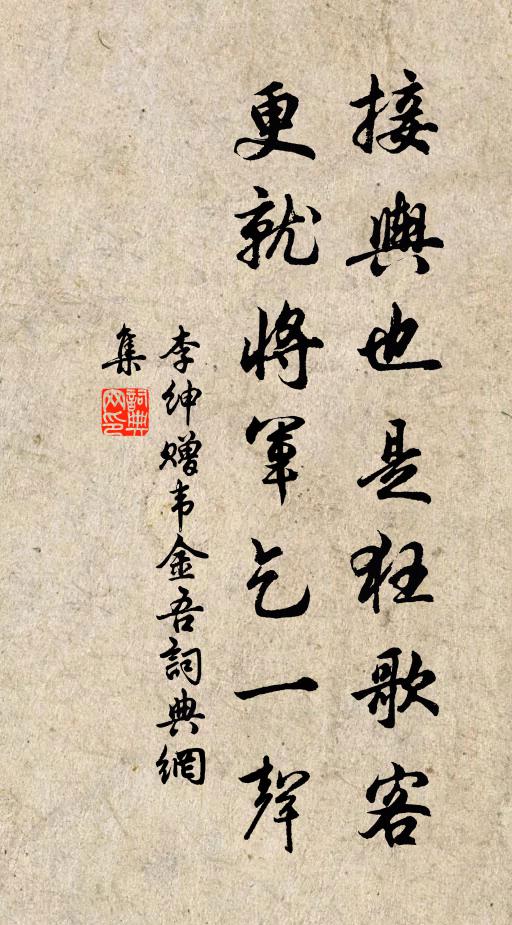 接輿也是狂歌客
更就將軍乞一聲
李紳赠韦金吾詞典網
集
詞典
网印